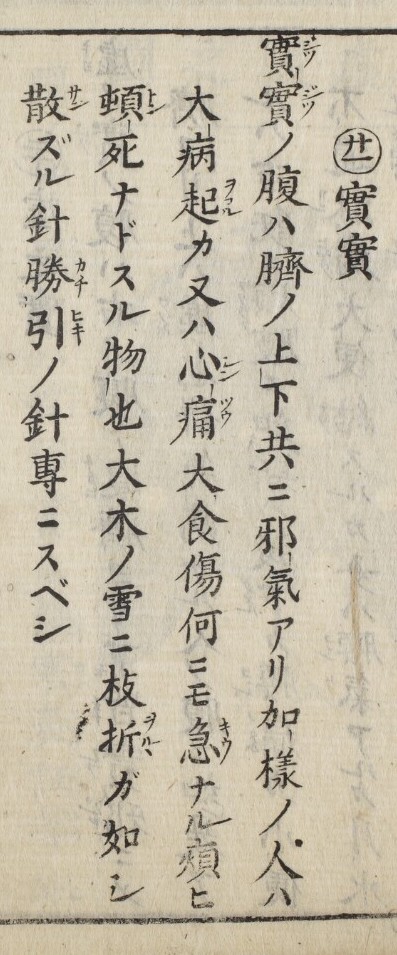 廿一 實實
實實ノ腹ハ臍ノ上下共ニ邪氣アリ加樣ノ人ハ
大病起カ又ハ心痛大食傷何ニモ急ナル煩ヒ
頓死ナドスル物也大木ノ雪ニ枝折ガ如シ
散ズル針勝引ノ針專ニスベシ